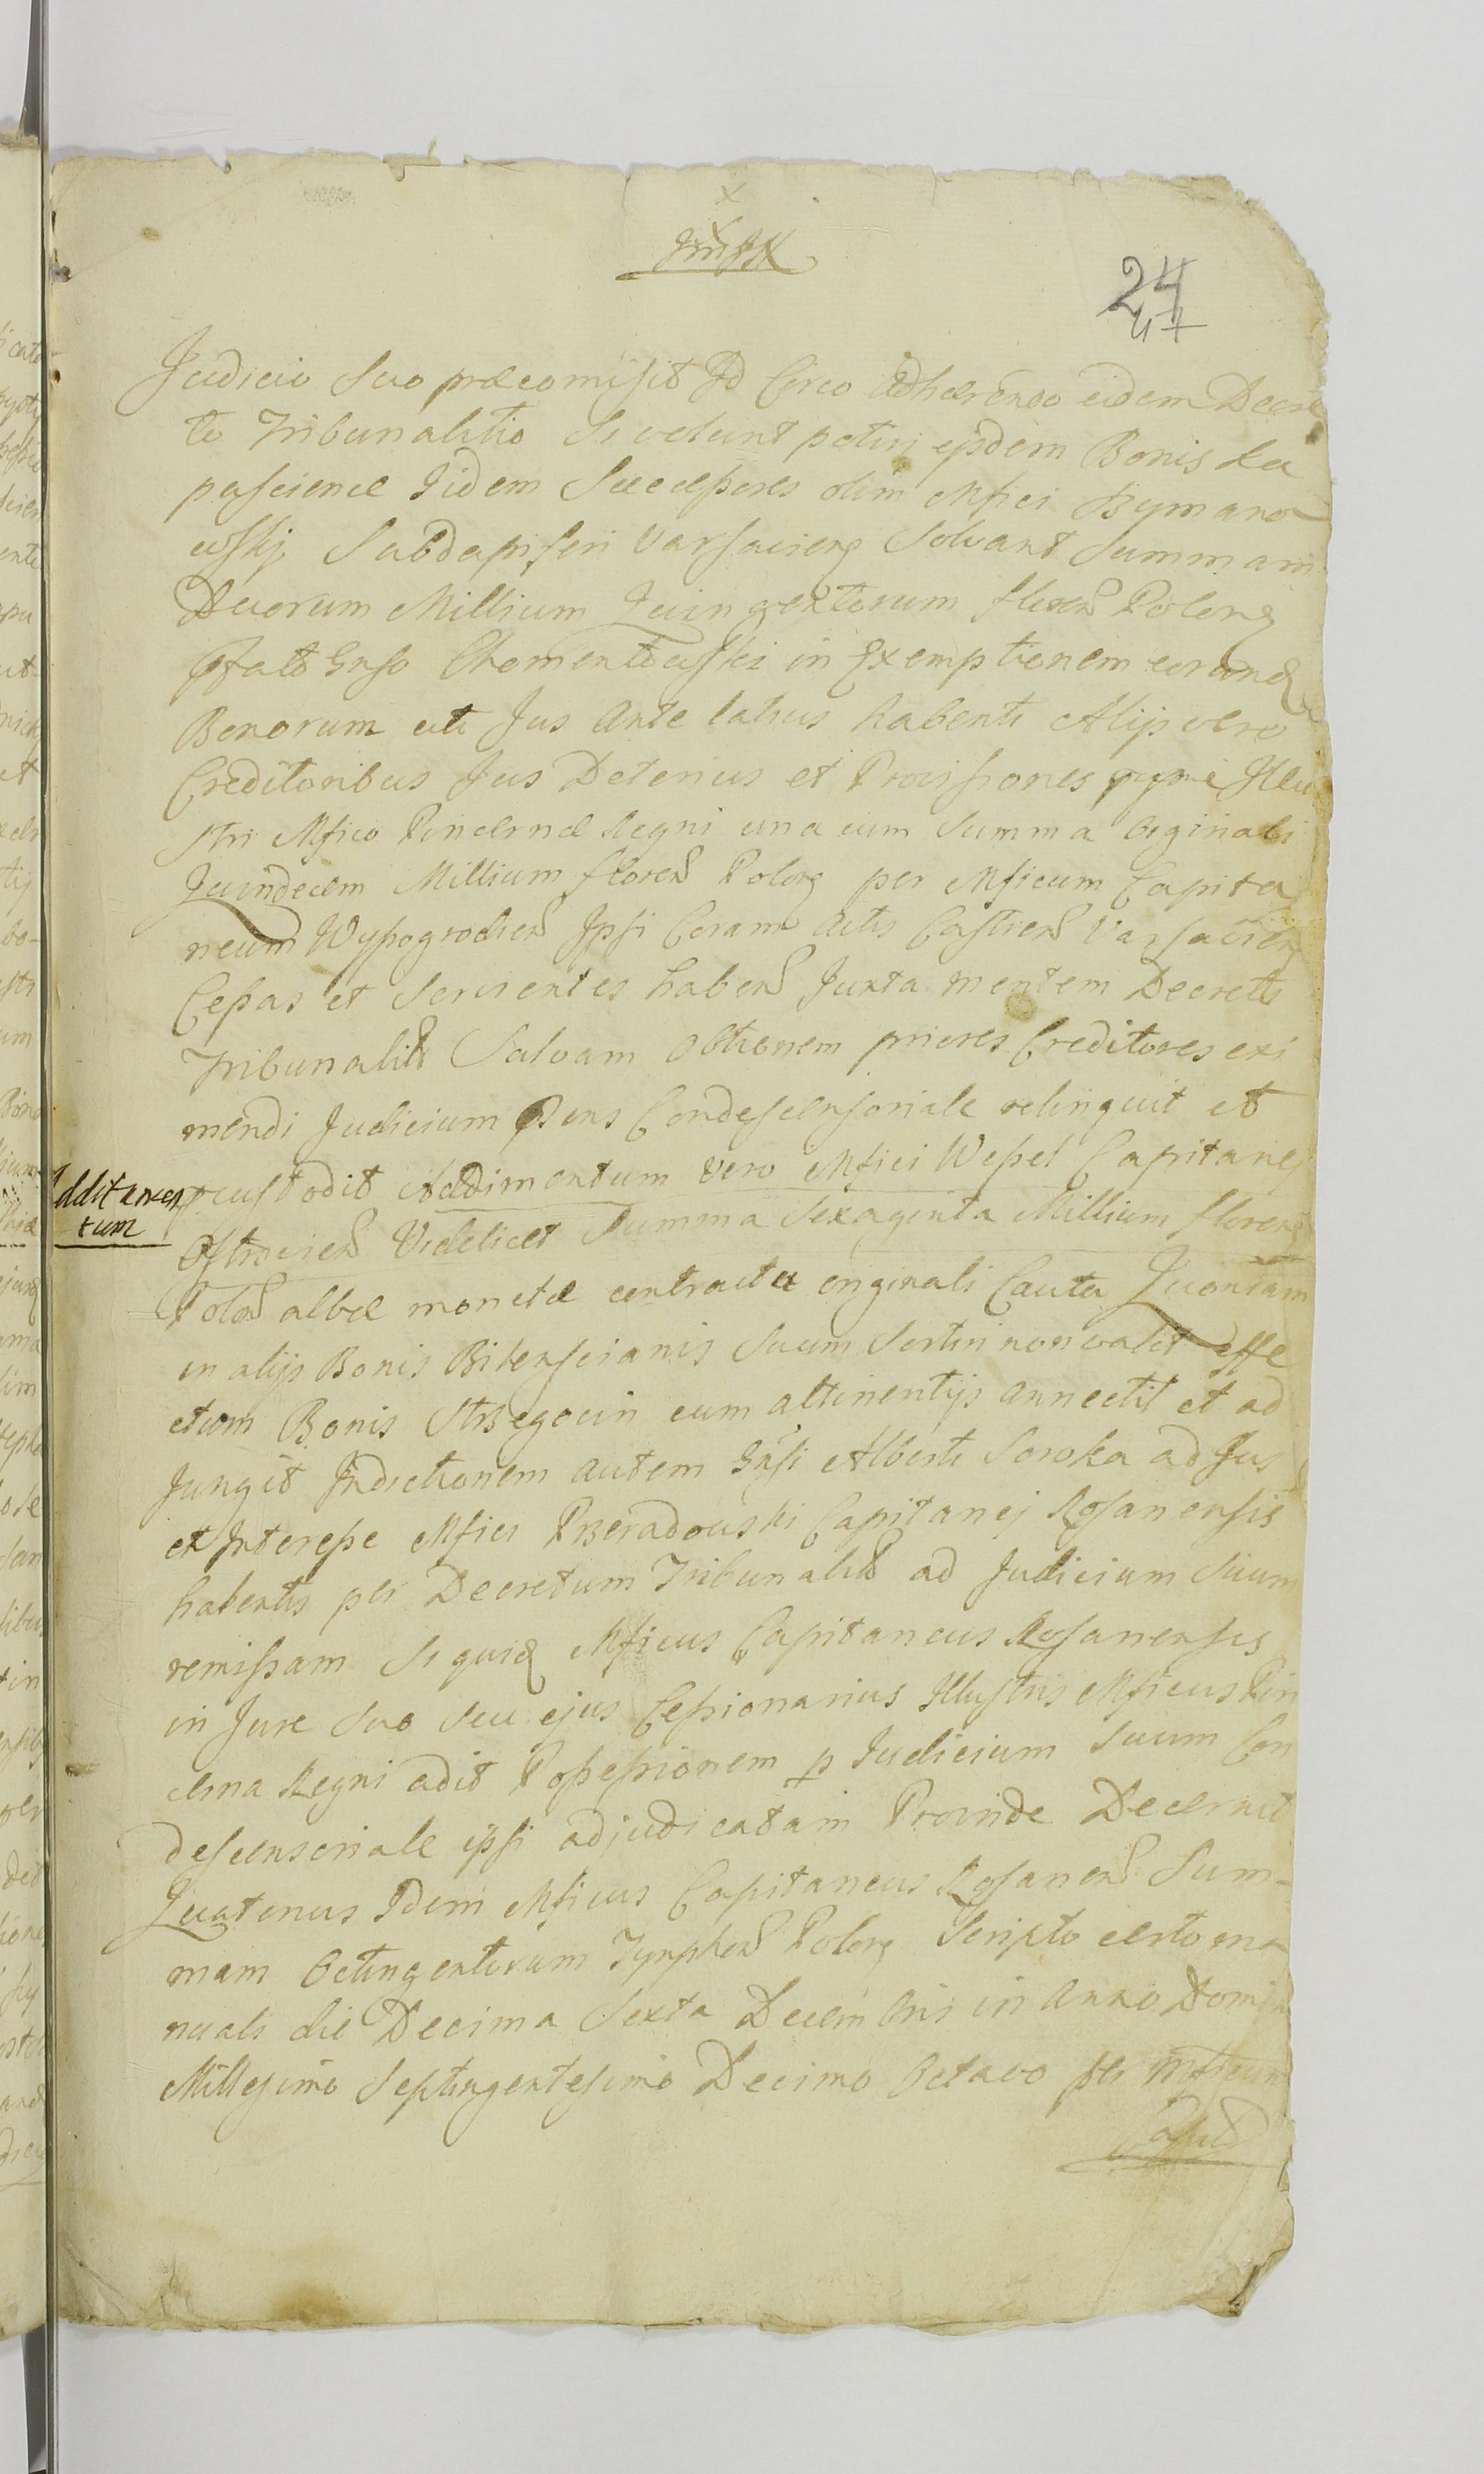 24
Judicio Suo præcomisit Id Circo Adhærendo eidem Decre
to Tribunalitio Si volunt potiri ijsdem Bonis
pascience Iidem Successores olim Mfici Szymano
wskij Subdapiferi Varsaviens Solvant Summam
Duorum Millium Quingentorum floren Polon
Gnso Chomentowski in Exemptionem eorund
Bonorum uti Jus Ante latius habenti Alijs vero
Creditoribus Jus Deterius et Provisiones Illu
stri Mfico Pincernæ Regni una cum Summa originali
Quindecem Millium floren Polon per Mficum Capita
neum Wyszogrodien Ipsi Coram Actis Castren Varsavien
Cessas et Servientes haben Juxta mentem Decreti
Tribunalit Salvam Obtionem priores Creditores exi
mendi Judicium Condescensoriale relinquit et
custodit Additamentum vero Mfici Wessel Capitanej
Additamen
tum
Ostrovien Videlicet Summa Sexaginta Millium floren
Polon albæ monetæ contractu originali Cauta Quoniam
in alijs Bonis Suum Sortiri non valet effe
ctum Bonis Strzegocin cum attinentijs annectit et ad
Jungit Indictionem autem Gnsi Alberti Soroka ad Jus
et Interesse Mfici Przeradowski Capitanej Rosanensis
habentis per Decretum Tribunalit ad Judicium Suum
remissam Siquid Mficus Capitaneus Rosanensis
in Jure Suo Seu ejus Cessionarius Illustris Mficus Pin
cerna Regni adit Possessionem p Judicium Suum Con
descensoriale ipsi adjudicatam Proinde Decernit
Quatenus Idem Mficus Capitaneus Rosanen Sum-
mam Octingentorum Tynphon Polon Scripto certo ma
nuali die Decima Sexta Decembris in Anno Domini
Millesimo Septingentesimo Decimo Octavo per Mficum